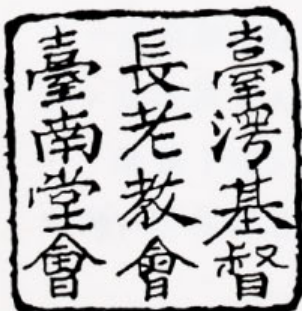 臺灣基督
長老教會
臺南堂會